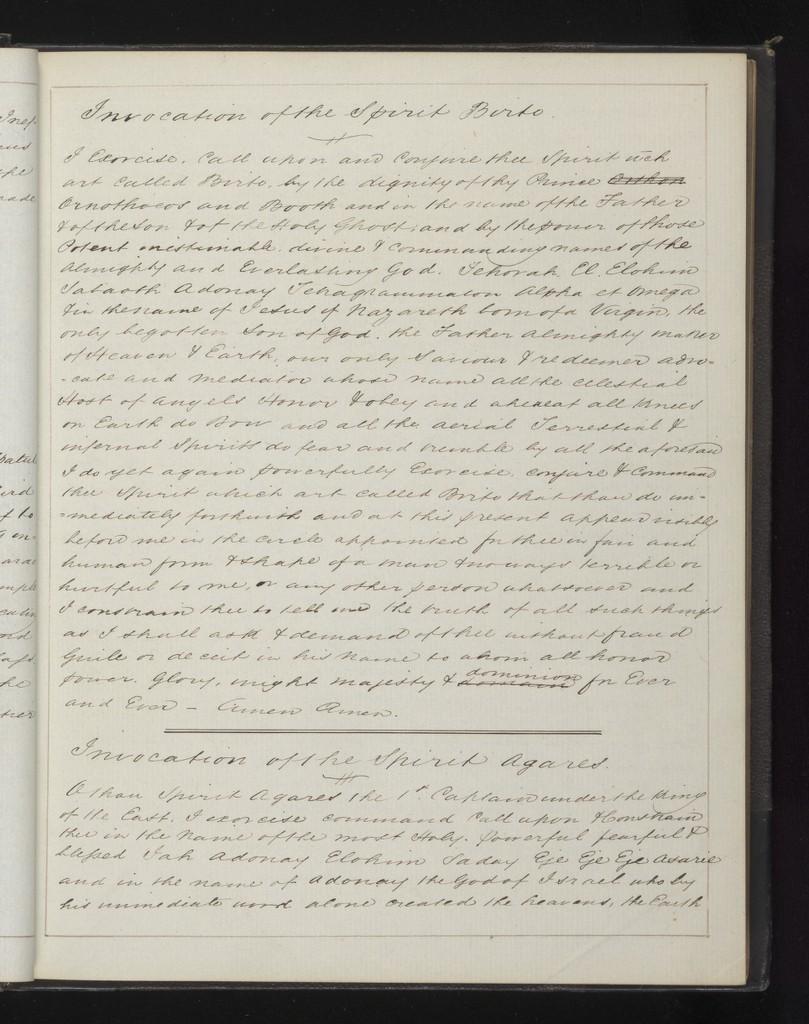 Invocation of the Spirit Birto.
I Exorcise, Call upon and Conjure thee Spirit wch
art Called Birto, by the dignity of thy Prince
Ornothocos and Booth and in the name of the Father
& of the Son & of the Holy Ghost; and by the power of those
Potent inestimable, divine & Commanding names of the
Almighty and Everlasting God. Jehovah El. Elohim
Sabaoth Adonay Tetragrammaton Alpha et Omega
& in the name of Jesus of Nazareth born of a Virgin, the
only begotten Son of God, the Father Almighty maker
of Heaven & Earth, our only Saviour & redeemer advo-
-cate and mediator whose name all the celestial
Host of Angels Honor & obey and whereat all Knees
on Earth do Bow and all the aerial Terrestial &
infernal Spirits do fear and tremble by all the aforesaid
I do yet again powerfully Exorcise, conjure & Command
thee Spirit which art called Birto that thou do im-
-mediately forthwith and at this present appear visibly
before me in the circle appointed for thee in fair and
human form & shape of a man & no ways terrible or
hurtful to me, or any other person whatsoever and
I constrain thee to tell me the truth of all such things
as I shall ask & demand of thee without fraud
Guile or deceit in his Name to whom all honor
power. Glory, might majesty & dominion for Ever
and Ever – Amen Amen.
Invocation of the Spirit Agares.
O thou Spirit Agares the 1st Captain under the King
of the East. I exorcise command Call upon & Constrain
thee in the Name of the most Holy, powerful fearful &
blessed Jah Adonay Elohim Saday Eje Eje Eje Asarie
and in the name of Adonay the God of Israel who by
his immediate word alone created the heavens, the Earth